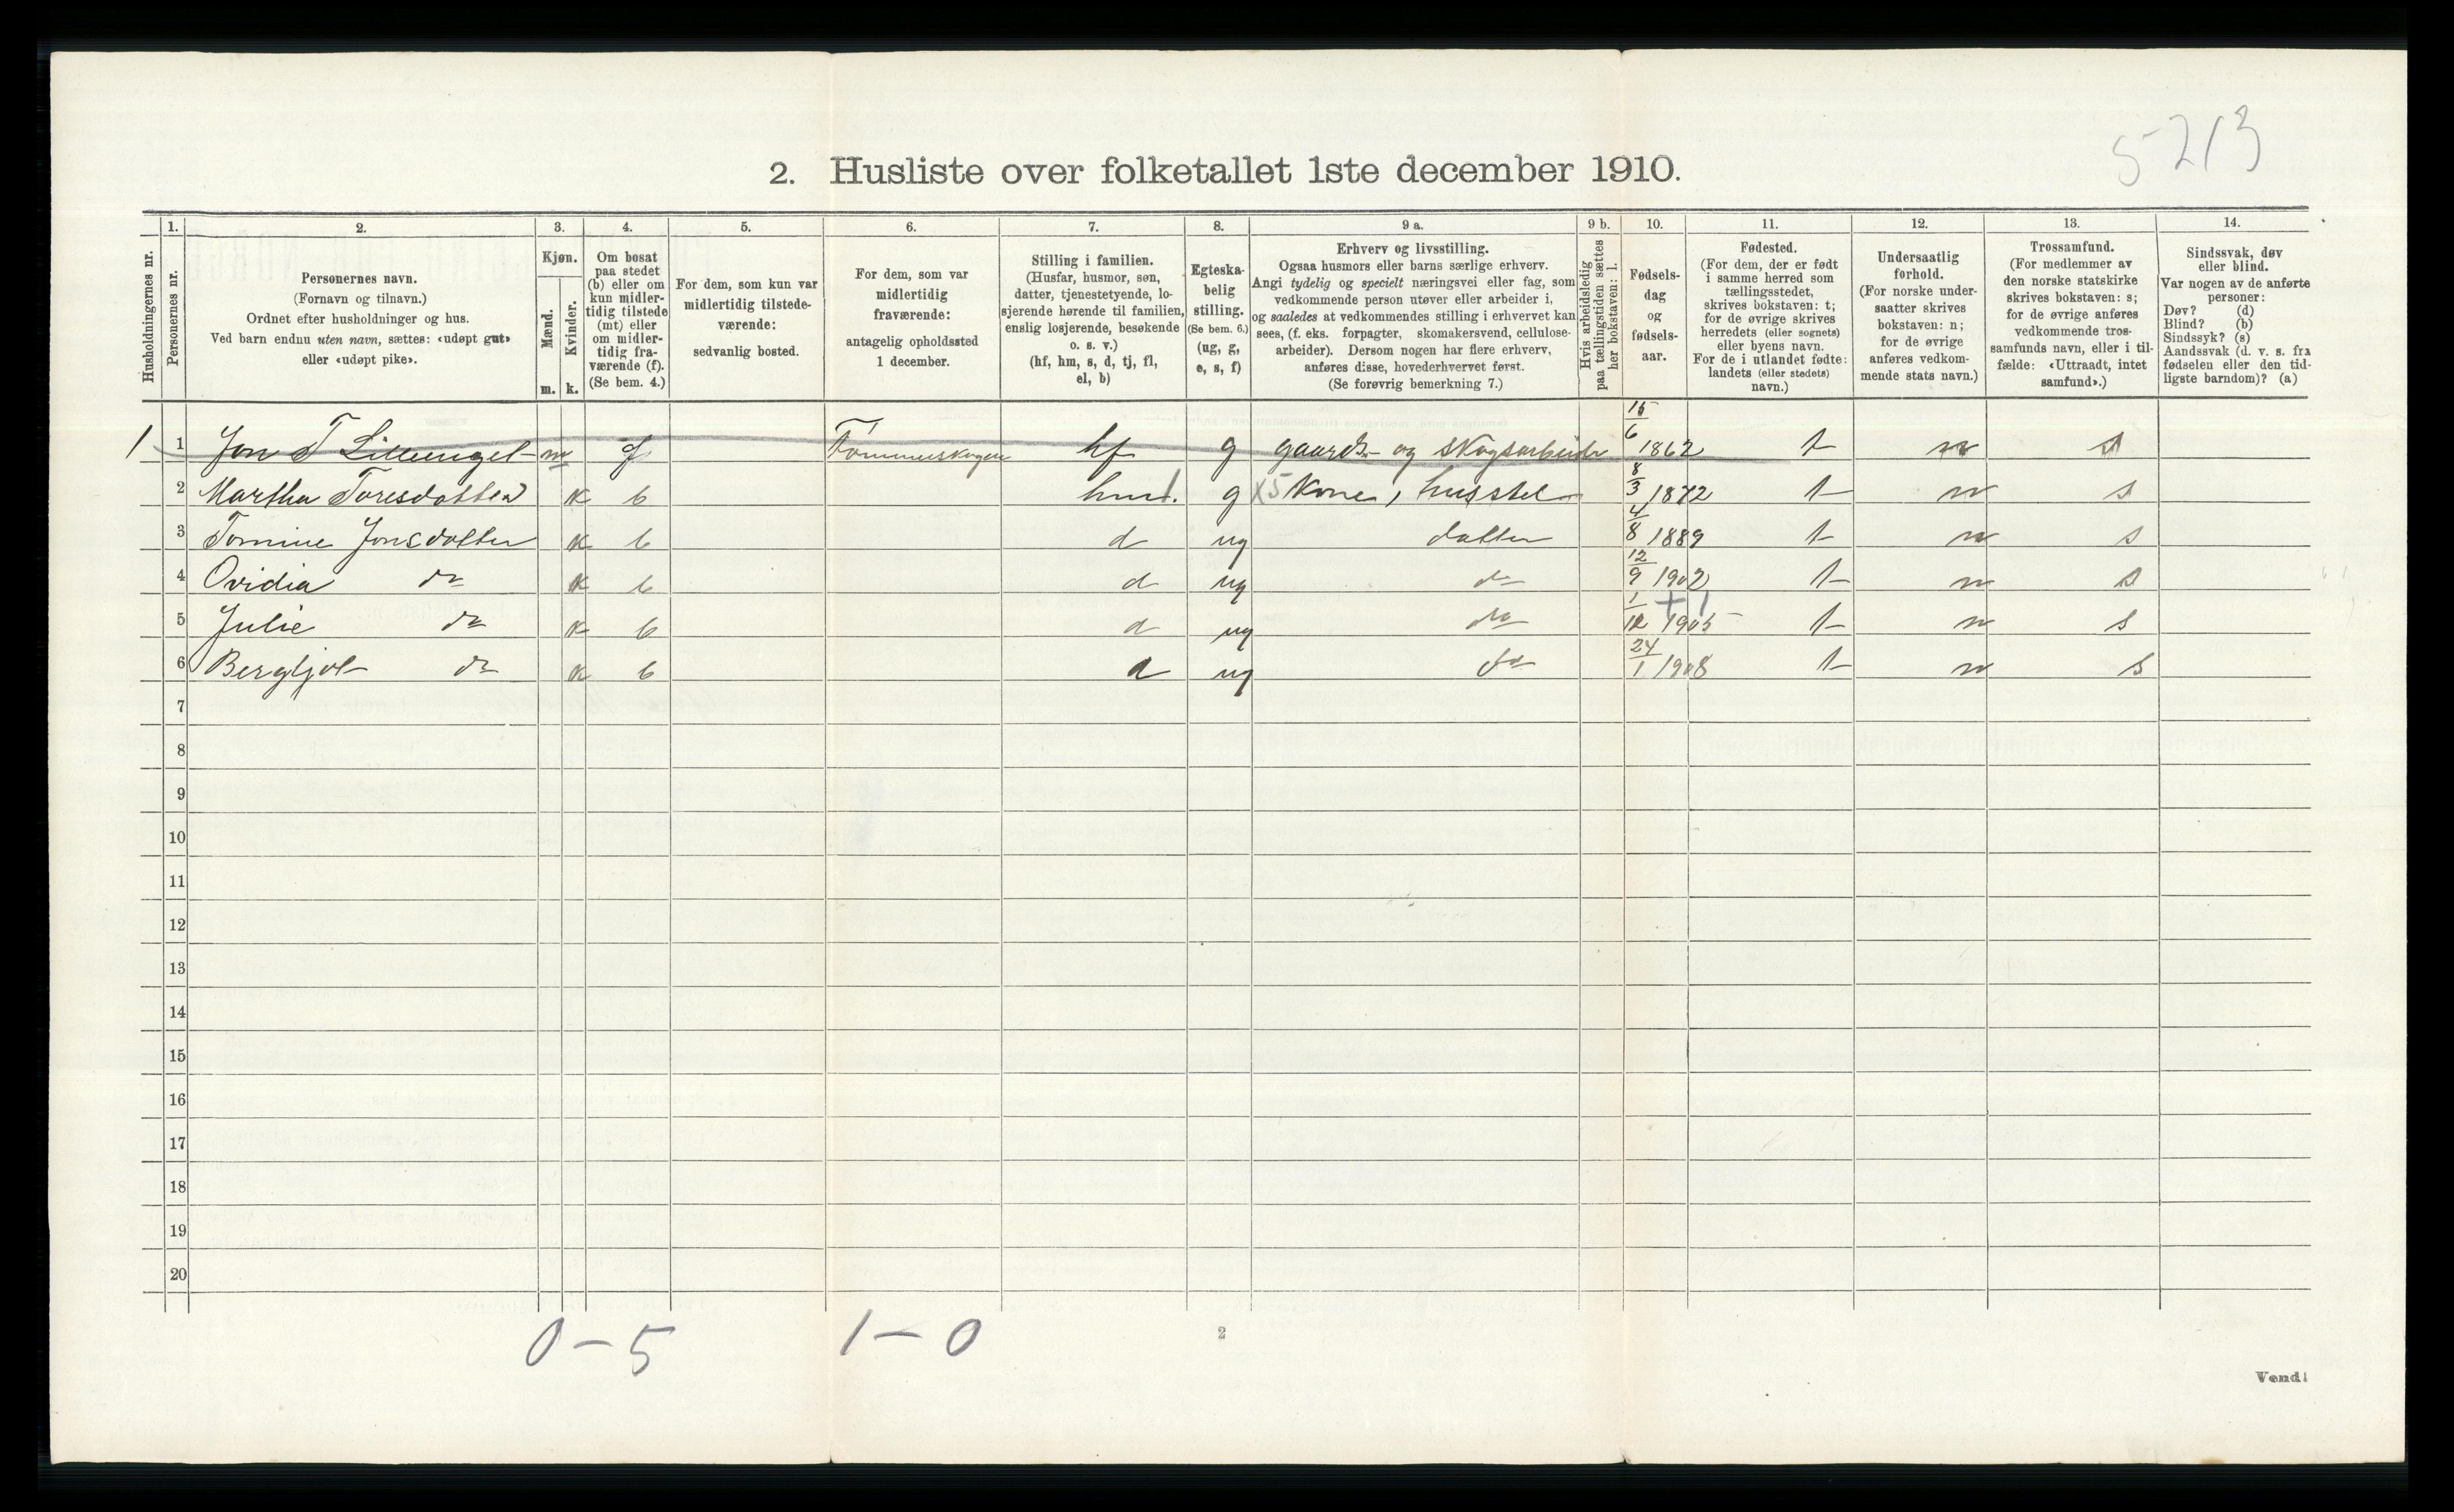 5213
2. Husliste over folketallet 1ste december 1910.
1. 2. 3. 4. 5. 6. 7. 8. 9 a. 9 b. 10. 11. 12. 13. 14.
Husholdningernes nr.
Personernes nr.
Personernes navn.
(Fornavn og tilnavn.)
Ordnet efter husholdninger og hus.
Ved barn endnu uten navn, sættes: «udøpt gut»
eller «udøpt pike».
Kjøn.
Mænd.
m.
Kvinder.
k.
Om bosat
paa stedet
(b) eller om
kun midler-
tidig tilstede
(mt) eller
om midler-
tidig fra-
værende (f).
(Se bem. 4.)
For dem, som kun var
midlertidig tilstede-
værende:
sedvanlig bosted.
For dem, som var
midlertidig
fraværende:
antagelig opholdssted
1 december.
Stilling i familien.
(Husfar, husmor, søn,
datter, tjenestetyende, lo-
sjerende hørende til familien,
enslig losjerende, besøkende
o. s. v.)
(hf, hm, s, d, tj, fl,
el, b)
Egteska-
belig
stilling.
(Se bem. 6.)
(ug, g,
e, s, f)
Erhverv og livsstilling.
Ogsaa husmors eller barns særlige erhverv.
Angi tydelig og specielt næringsvei eller fag, som
vedkommende person utøver eller arbeider i,
og saaledes at vedkommendes stilling i erhvervet kan
sees, (f. eks. forpagter, skomakersvend, cellulose-
arbeider). Dersom nogen har flere erhverv,
anføres disse, hovederhvervet først.
(Se forøvrig bemerkning 7.)
Hvis arbeidsledig
paa tællingstiden sættes
her bokstaven: l.
Fødsels-
dag
og
fødsels-
aar.
Fødested.
(For dem, der er født
i samme herred som
tællingsstedet,
skrives bokstaven: t;
for de øvrige skrives
herredets (eller sognets)
eller byens navn.
For de i utlandet fødte:
landets (eller stedets)
navn.)
Undersaatlig
forhold.
(For norske under-
saatter skrives
bokstaven: n;
for de øvrige
anføres vedkom-
mende stats navn.)
Trossamfund.
(For medlemmer av
den norske statskirke
skrives bokstaven: s;
for de øvrige anføres
vedkommende tros-
samfunds navn, eller i til-
fælde: «Uttraadt, intet
samfund».)
Sindssvak, døv
eller blind.
Var nogen av de anførte
personer:
Døv? (d)
Blind? (b)
Sindssyk? (s)
Aandssvak (d. v. s. fra
fødselen eller den tid-
ligste barndom)? (a)
1 1 Jon T Lilleengel m f Tømmerskogen hf g gaards- og skogsarbeider 15/6 1862 t n s
2 Martha Toresdatter k b hm. g x5 Kone, husstel 8/3 1872 t n s
3 Tomine Jonsdatter k b d ug datter 4/8 1889 t n s
4 Ovidia do k b d ug do 12/9 1902 t n s
5 Julie do k b d ug do 1/12 1905 t n s
6 Bergljot do k b d ug do 24/1 1908 t n s
7
8
9
10
11
12
13
14
15
16
17
18
19
20
0-5 1-0
2
Vend!